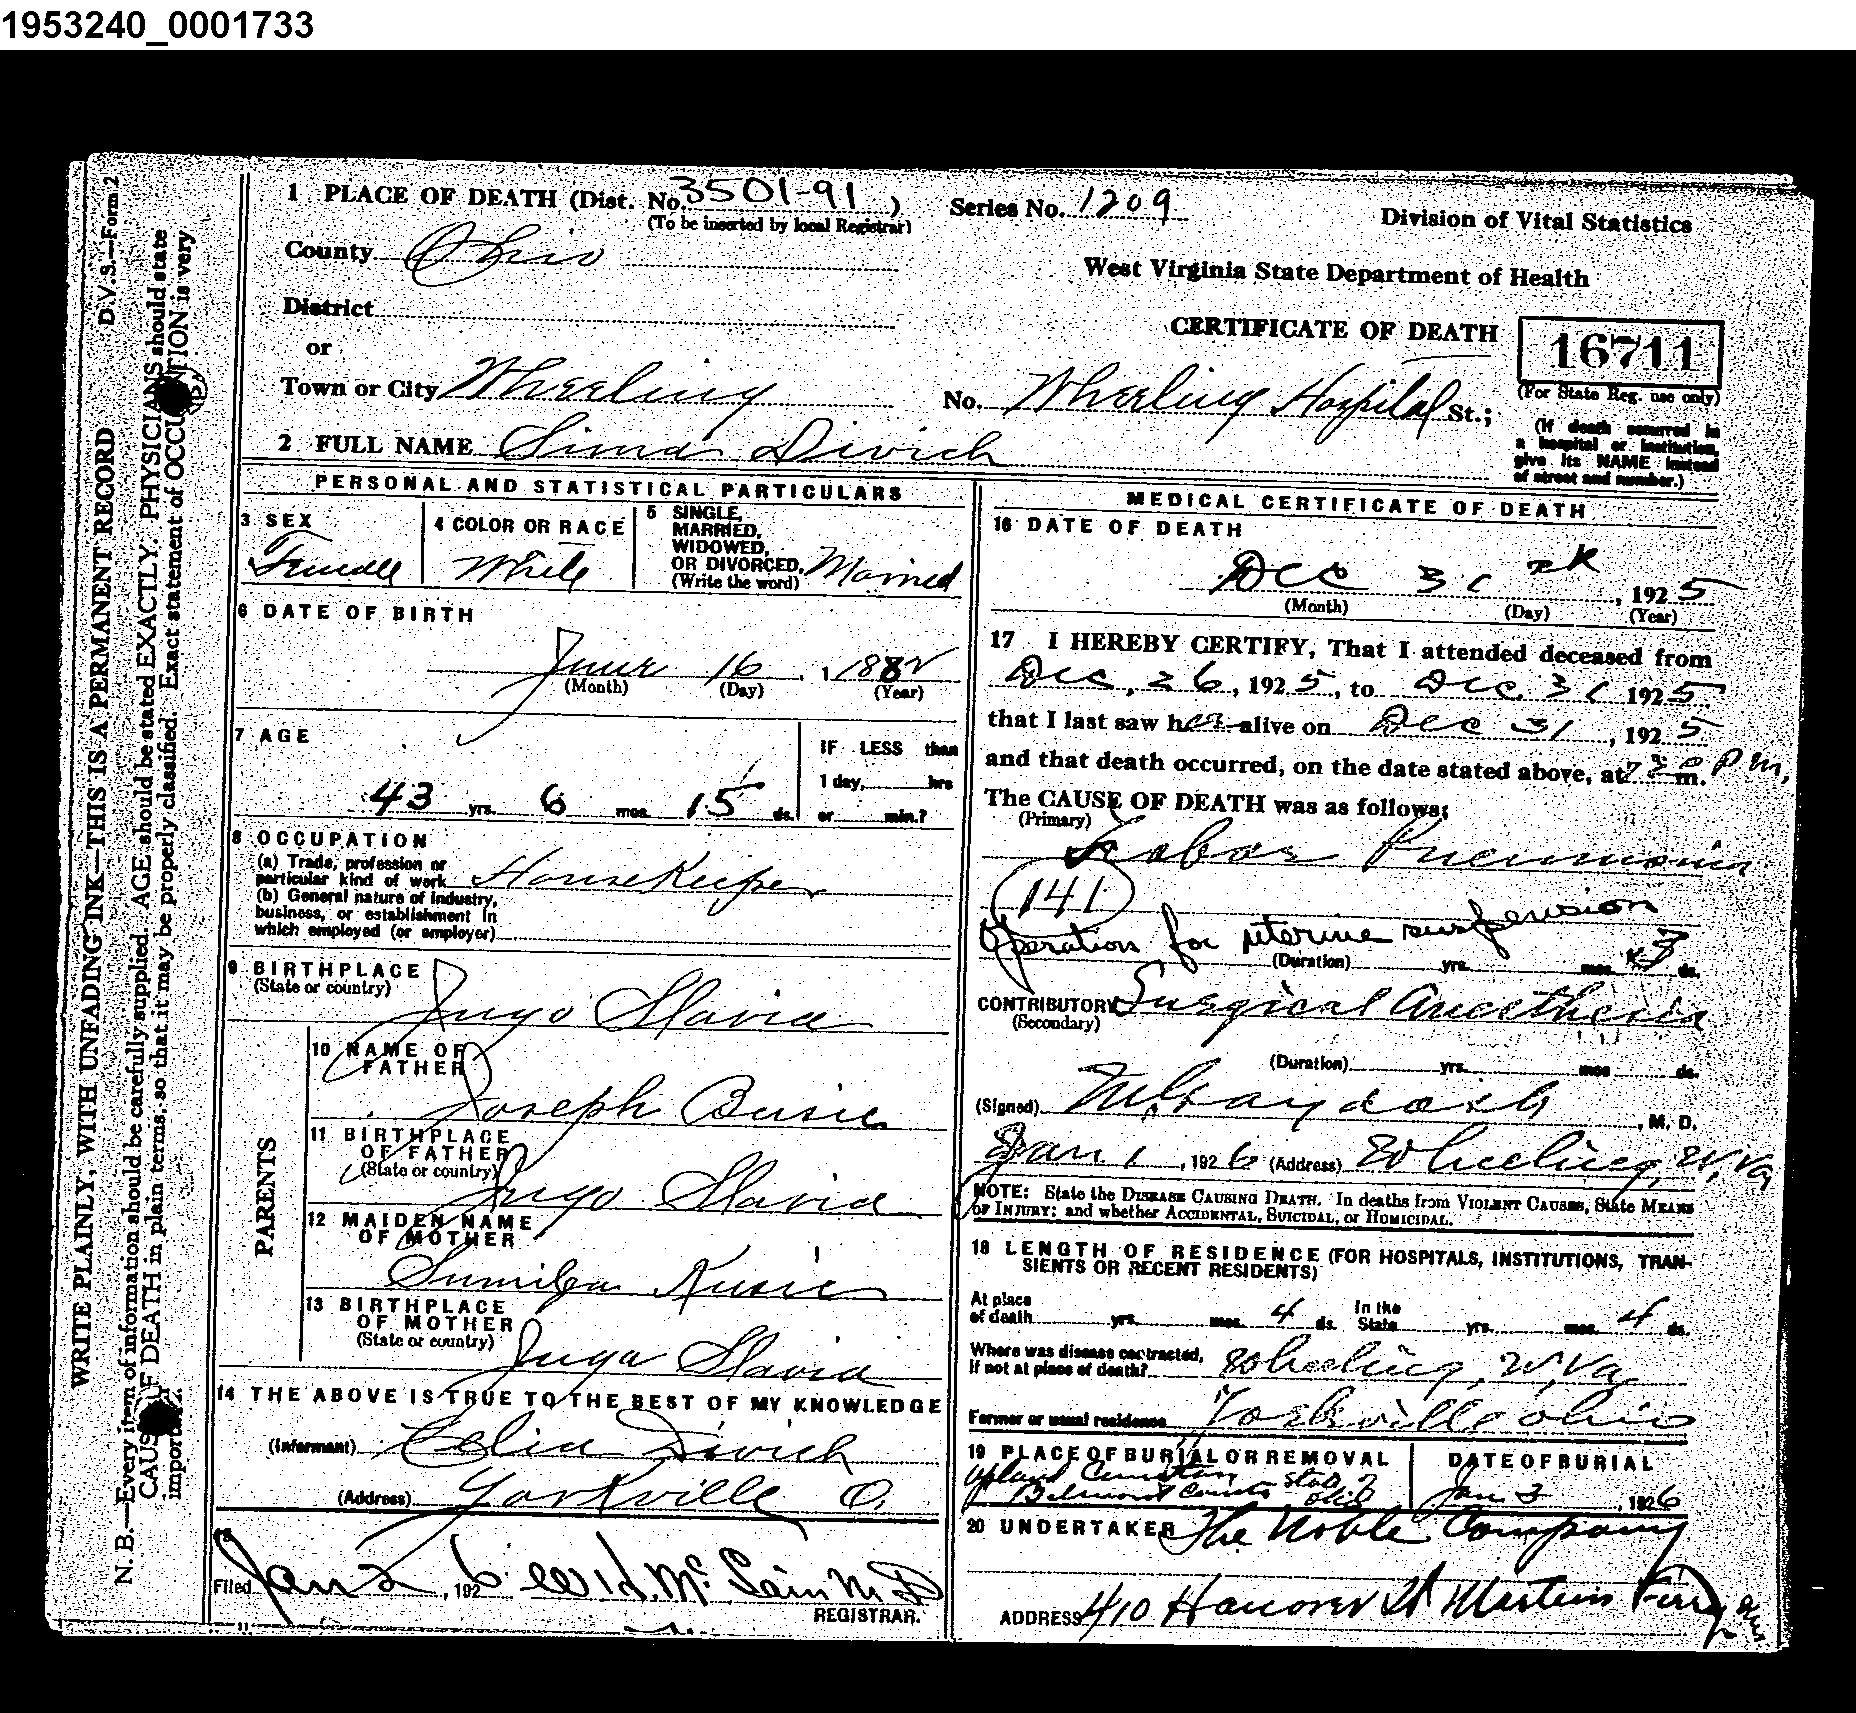 1953240_0001733
D.V.S.—Form 2
WRITE PLAINLY, WITH UNFADING INK—THIS IS A PERMANENT RECORD
N. B.—Every item of information should be carefully supplied. AGE should be stated EXACTLY. PHYSICIANS should state
CAUSE OF DEATH in plain terms, so that it may be properly classified. Exact statement of OCCUPATION is very
important.
1 PLACE OF DEATH (Dist. No. 3501-91 )
(To be inserted by local Registrar)
Series No. 1209
Division of Vital Statistics
County Ohio
West Virginia State Department of Health
District
CERTIFICATE OF DEATH
16711
(For State Reg. use only)
or
Town or City Wheeling
No. Wheeling Hospital St.;
(If death occurred in
a hospital or institution,
give its NAME instead
of street and number.)
2 FULL NAME Sima Divich
PERSONAL AND STATISTICAL PARTICULARS
3 SEX
Female
4 COLOR OR RACE
White
5 SINGLE,
MARRIED,
WIDOWED,
OR DIVORCED,
(Write the word) Married
6 DATE OF BIRTH
June 16, 1882
(Month) (Day) (Year)
7 AGE
43 yrs. 6 mos. 15 ds.
IF LESS than
1 day, hrs
or min.?
8 OCCUPATION
(a) Trade, profession or
particular kind of work HouseKeeper
(b) General nature of industry,
business, or establishment in
which employed (or employer)
9 BIRTHPLACE
(State or country)
Jugo Slavia
PARENTS
10 NAME OF
FATHER
Joseph Busic
11 BIRTHPLACE
OF FATHER
(State or country)
Jugo Slavia
12 MAIDEN NAME
OF MOTHER
Kusic
13 BIRTHPLACE
OF MOTHER
(State or country)
Juga Slavia
14 THE ABOVE IS TRUE TO THE BEST OF MY KNOWLEDGE
(Informant) Celia Divich
(Address) Yorkville O.
15
Filed Jan 2, 1926 McLain M D
REGISTRAR.
MEDICAL CERTIFICATE OF DEATH
16 DATE OF DEATH
Dec 31, 1925
(Month) (Day) (Year)
17 I HEREBY CERTIFY, That I attended deceased from
Dec, 26, 1925, to Dec. 31 1925
that I last saw her alive on Dec 31, 1925
and that death occurred, on the date stated above, at 730 m. P m.
The CAUSE OF DEATH was as follows:
(Primary)
Lobar Pneumonia
(141)
Operation for uterine suspension
(Duration) yrs. mos. 3 ds.
CONTRIBUTORY Surgical Anesthesia
(Secondary)
(Duration) yrs. mos ds.
(Signed) , M. D.
Jan 1, 1926 (Address) Wheeling, W, Va,
NOTE: State the DISEASE CAUSING DEATH. In deaths from VIOLENT CAUSES, State MEANS
OF INJURY; and whether ACCIDENTAL, SUICIDAL, or HOMICIDAL.
18 LENGTH OF RESIDENCE (FOR HOSPITALS, INSTITUTIONS, TRAN-
SIENTS OR RECENT RESIDENTS)
At place
of death yrs. mos. 4 ds. In the
State yrs. mos. 4 ds.
Where was disease contracted,
if not at place of death? Wheeling, W, Va,
Former or usual residence Yorkville Ohio
19 PLACE OF BURIAL OR REMOVAL
Upland Cemetery
Belmont County State Ohio
DATE OF BURIAL
Jan 3, 1926
20 UNDERTAKER The Noble Company
ADDRESS 410 Hanover St Martins Ferry Ohio